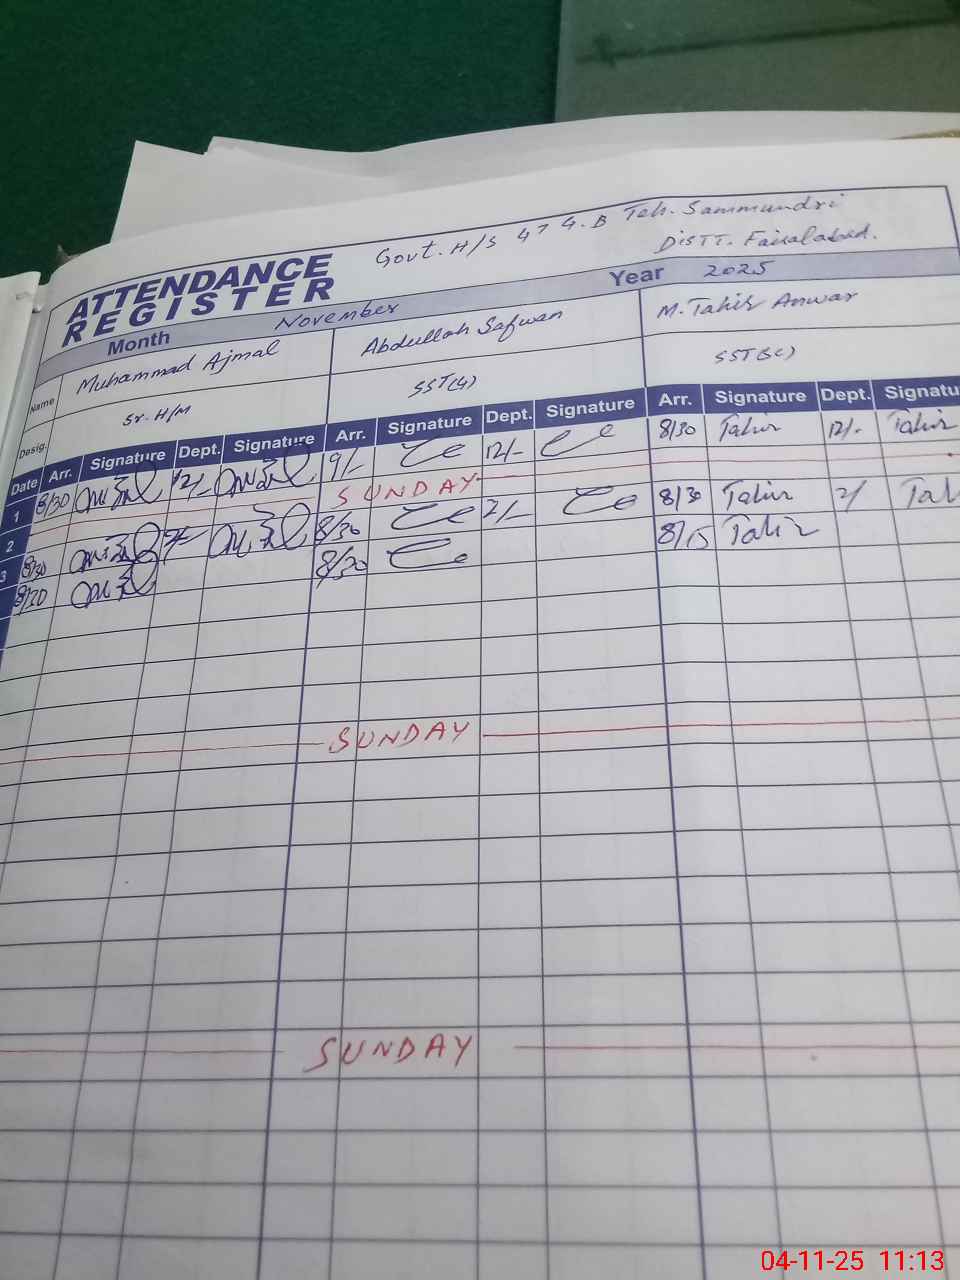 Govt. H/S 47 G.B Teh. Sammundri
DISTT. Faisalabad.
ATTENDANCE
REGISTER
Month November Year 2025
Name Muhammad Ajmal Abdullah Safwan M. Tahir Anwar
Desig. Sr. H/M SST(G) SST(SC)
Date Arr. Signature Dept. Signature Arr. Signature Dept. Signature Arr. Signature Dept. Signatu
1 8/30 12/- 9/- 12/- 8/30 Tahir 12/- Tahir
2 SUNDAY
3 8/30 8/30 2/- 8/30 Tahir 2/ Tah
8/20 8/20 8/15 Tahir
SUNDAY
SUNDAY
04-11-25 11:13